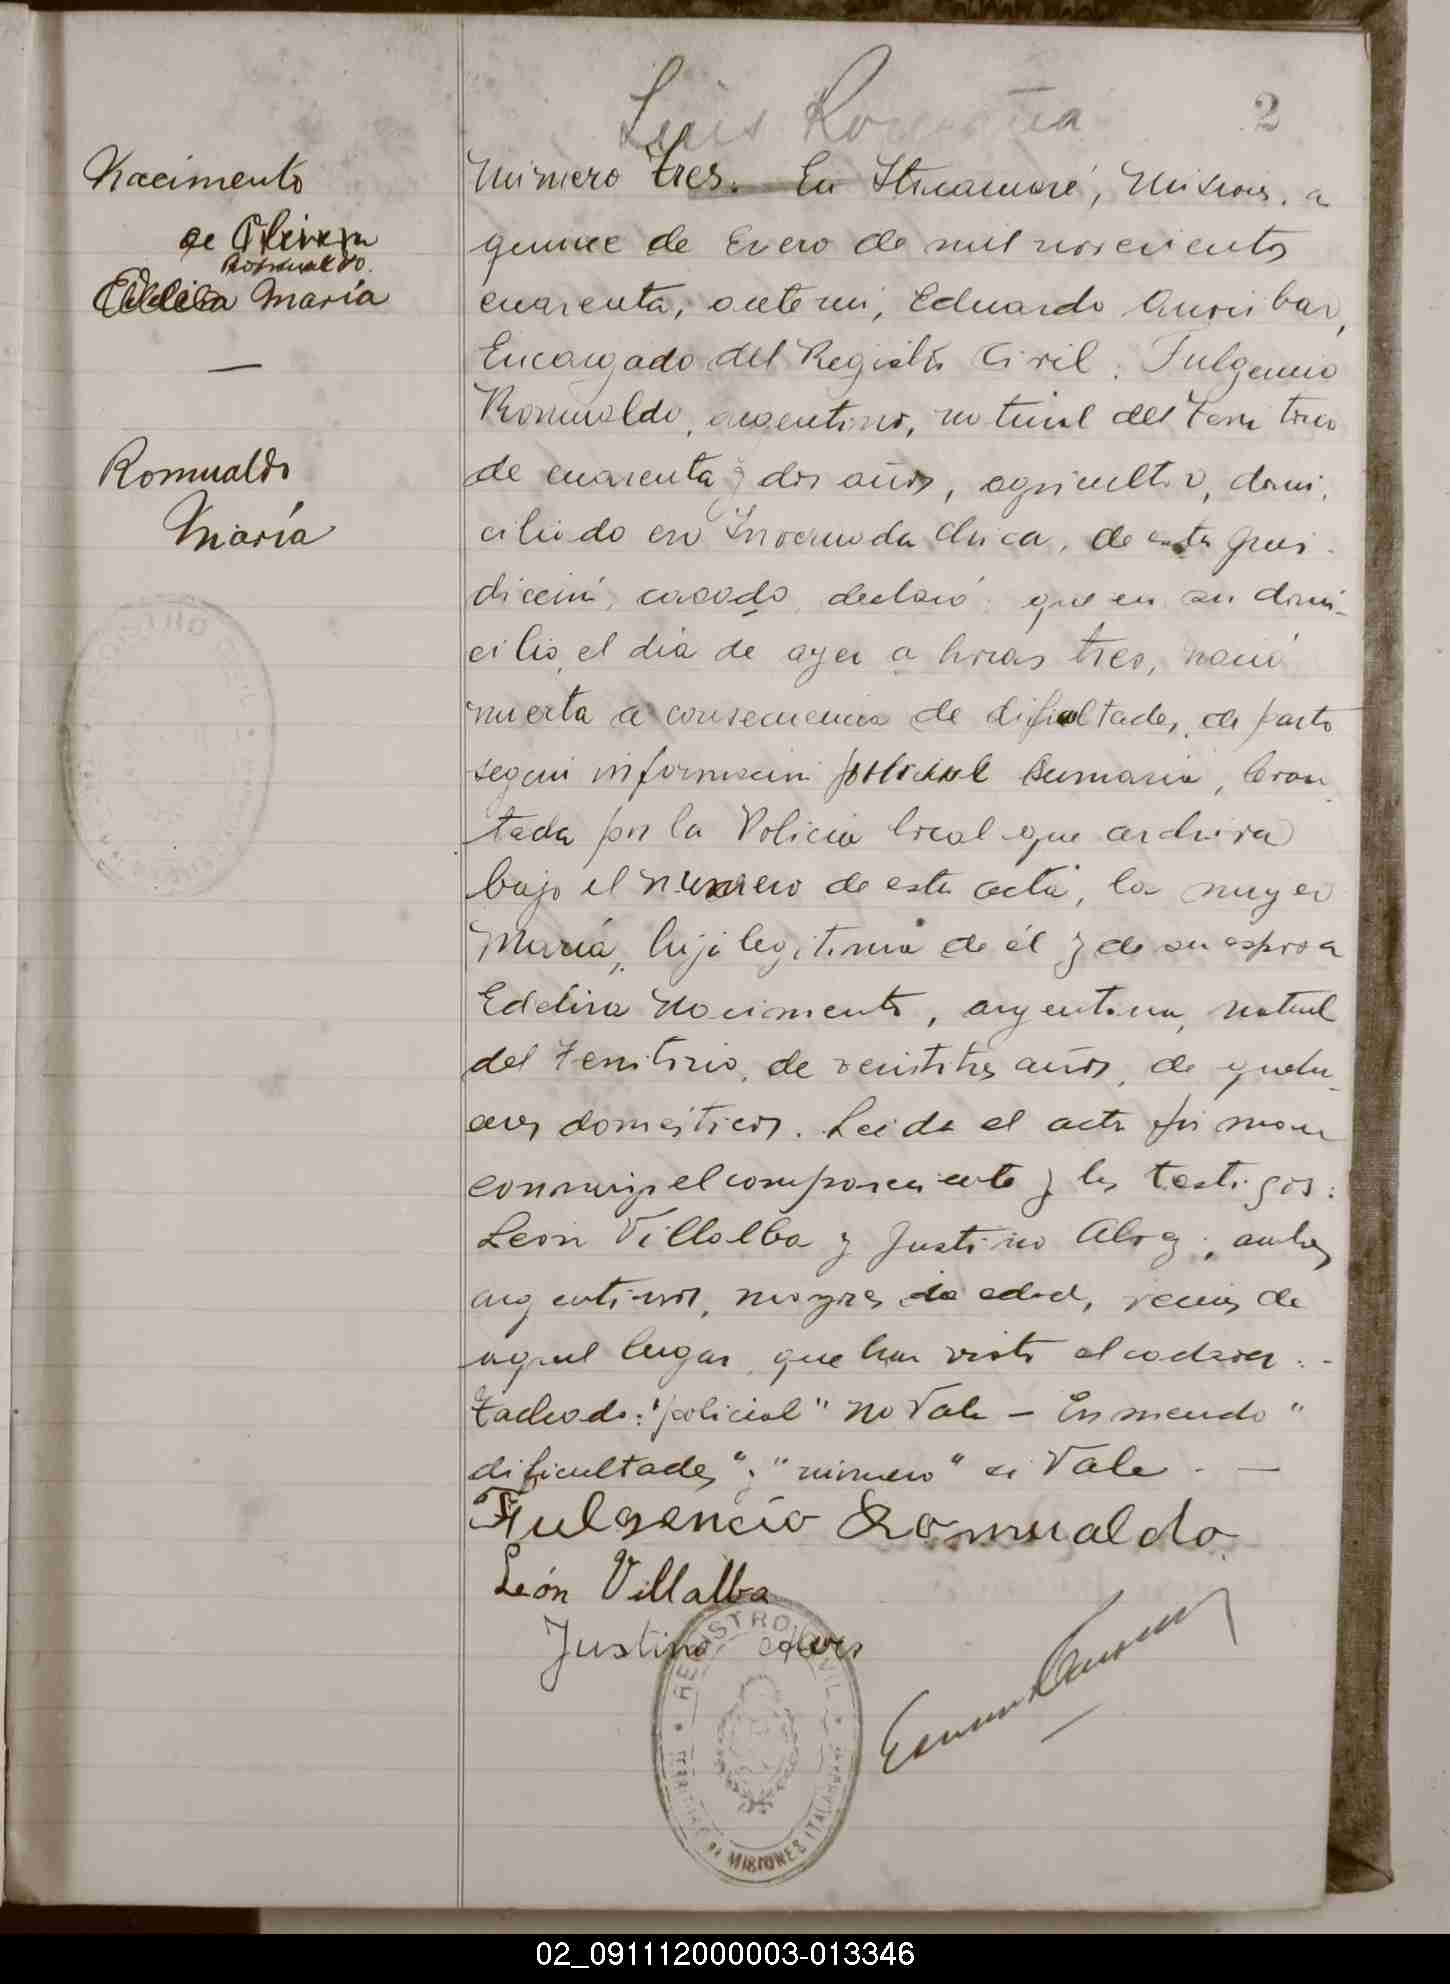 2
Nacimento
de
Romualdo
María
Romualdo
María
Número tres. En Itacaruaré, Misiones, a
quince de Enero de mil novecientos
cuarenta, ante mi, Eduardo
Encargado del Registro Civil: Fulgencio
Romualdo, argentino, natural del Territorio
de cuarenta y dos años, agricultor, domi-
ciliado en Invernada Chica, de esta juris-
diccin, casado, declaró: que en su domi-
cilio, el día de ayer a horas tres, nació
muerta a consecuencia de dificultades de parto
segun informacin policial sumaria, levan-
tada por la Policia local que archiva
bajo el número de esta acta, la mujer
María, hija legitima de él y de su esposa
Edelira Nacimento, argentina, natural
del Territorio, de veintitres años, de queha-
ceres domésticos. Leida el acta firman
conmigo el compareciente y los testigos:
León Villalba y Justino Alvez, ambos
argentinos, mayores de edad, vecinos de
aquel lugar, que han visto el cadaver. -
Tachado: "policial" no Vale - Enmendo "
dificultades" y "número" si Vale. -
Fulgencio Romualdo
León Villalba
Justino
REGISTRO CIVIL
TERRITORIO DE MISIONES ITACARUARE
02_091112000003-013346